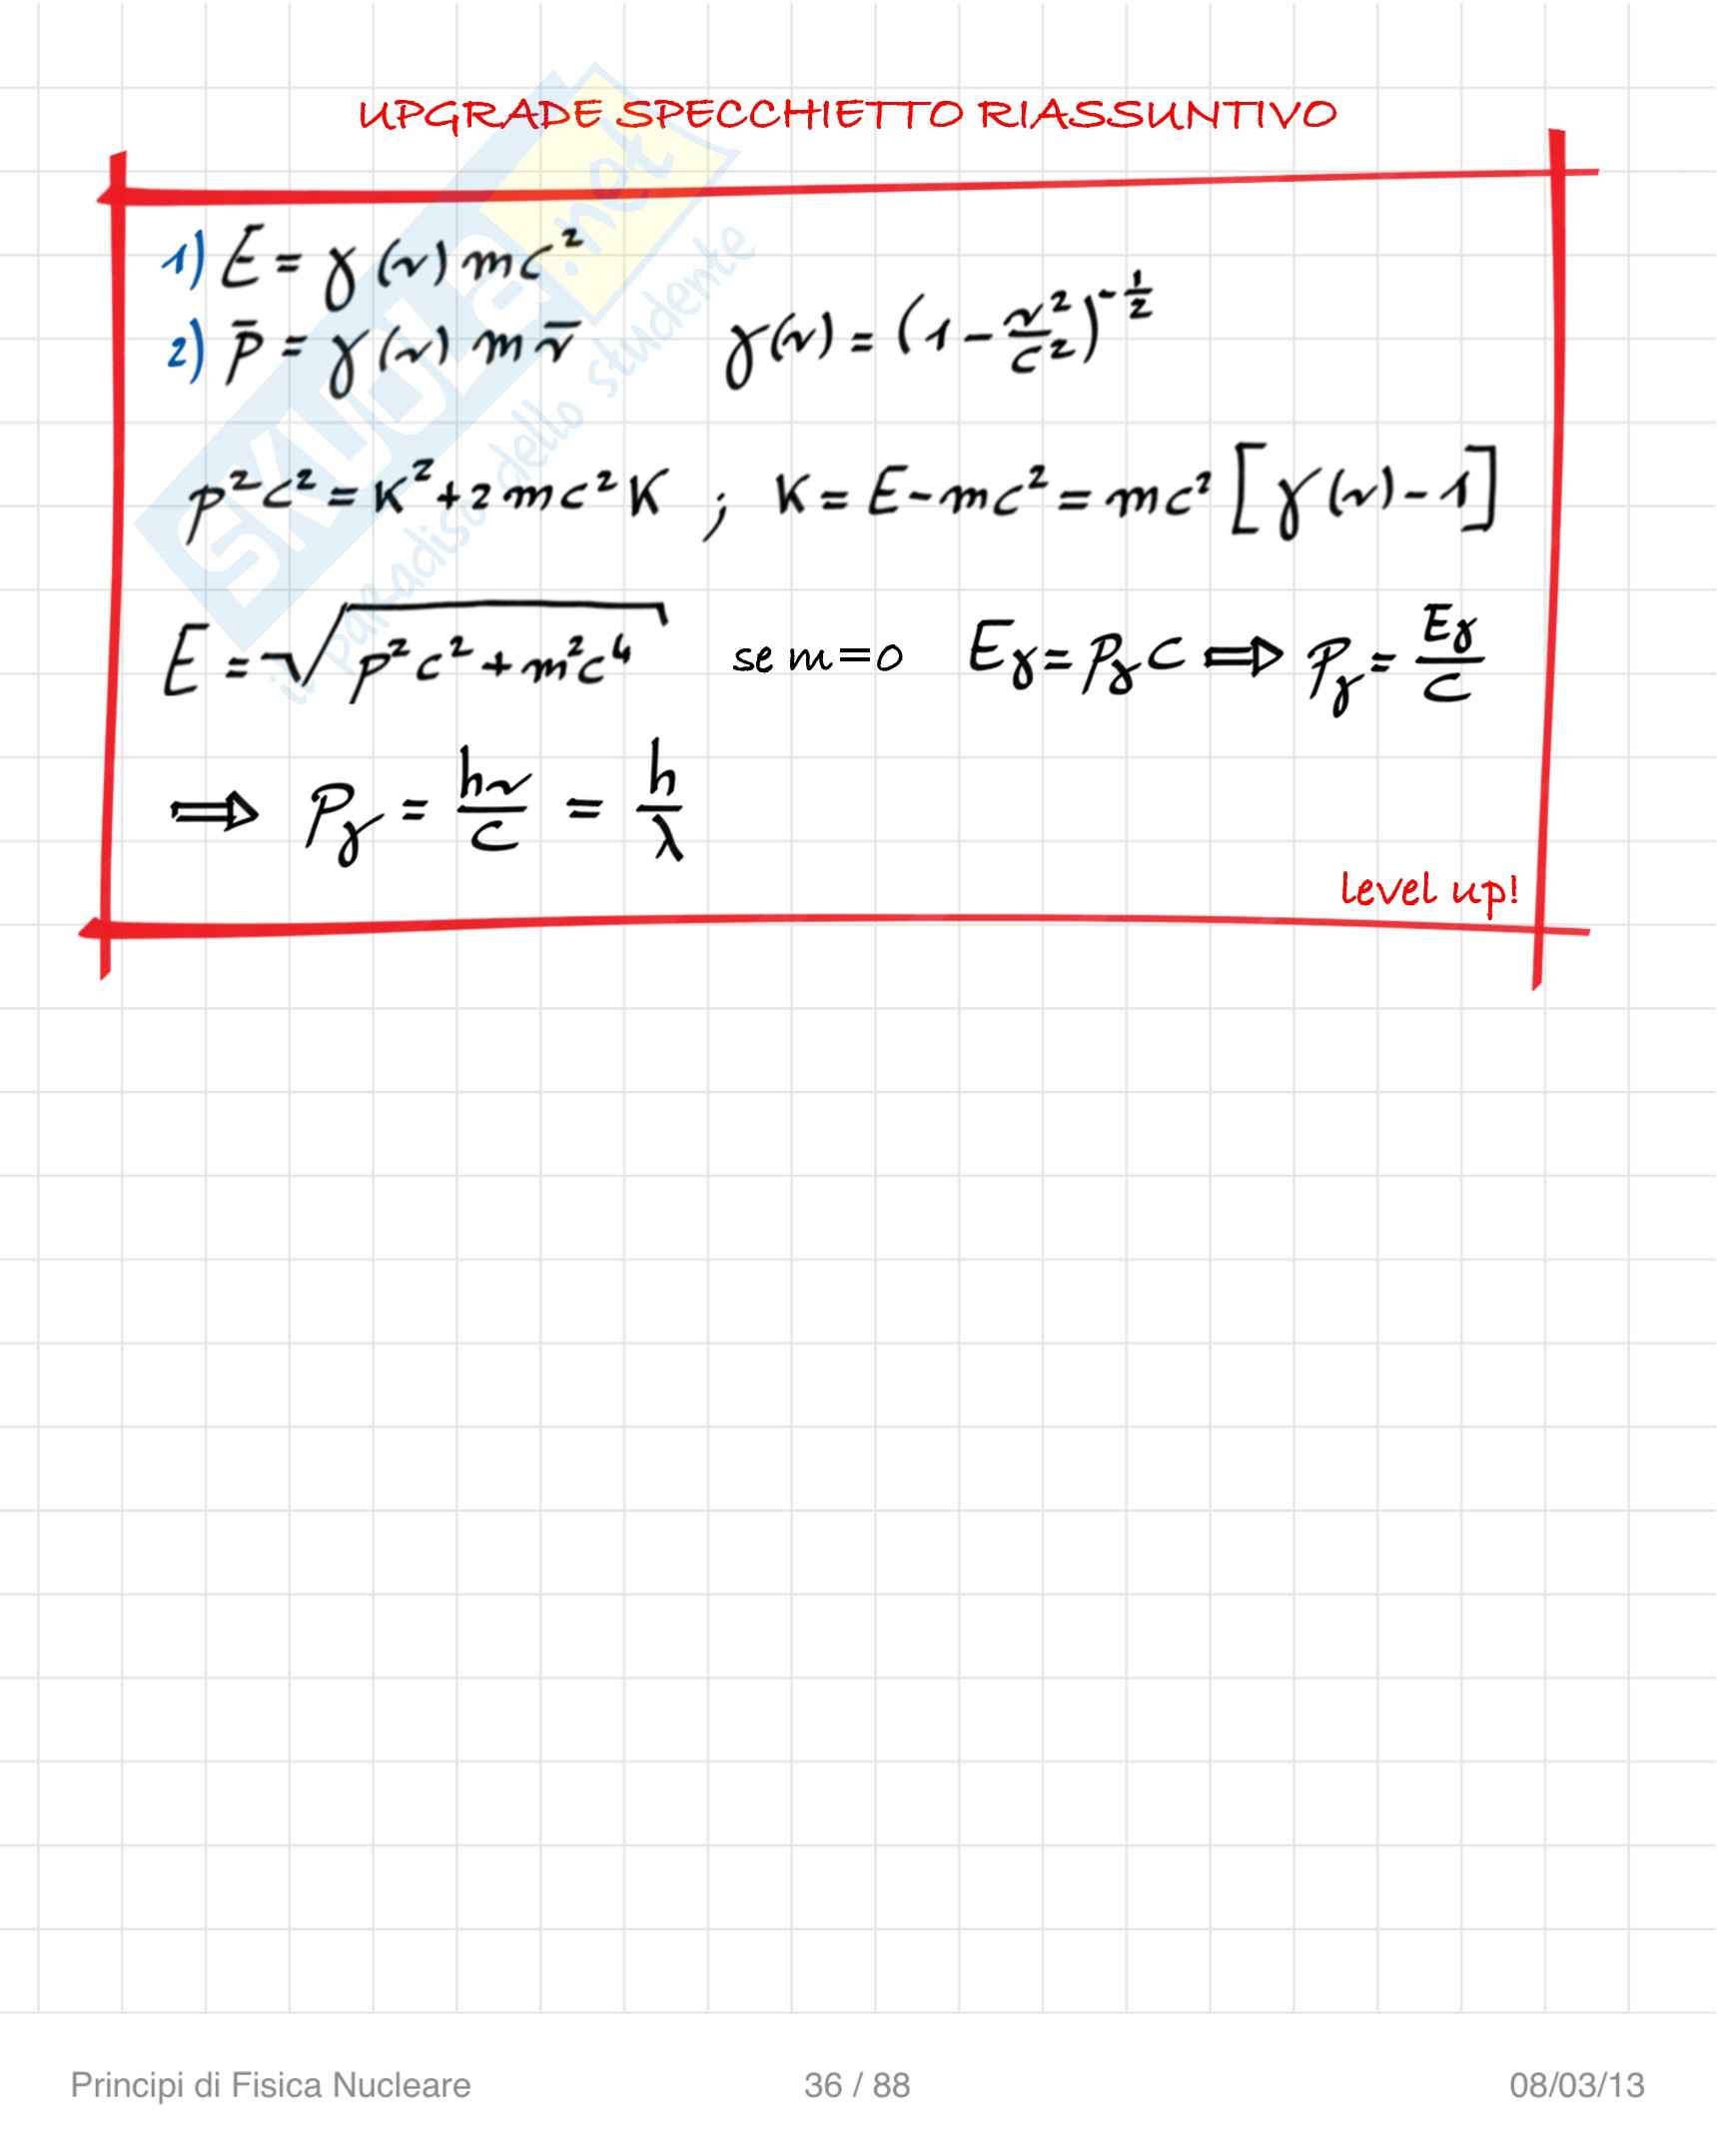 UPGRADE SPECCHIETTO RIASSUNTIVO
1) E = γ(v) mc²
2) p̄ = γ(v) m v̄    γ(v) = (1 - v²/c²)^-½
p²c² = K² + 2mc²K ; K = E - mc² = mc² [γ(v) - 1]
E = √(p²c² + m²c⁴)    se m=0    Eγ = pγ c ⟹ pγ = Eγ/c
⟹ pγ = hν/c = h/λ
level up!
SKUOLA.net
il paradiso dello studente
Principi di Fisica Nucleare    36 / 88    08/03/13